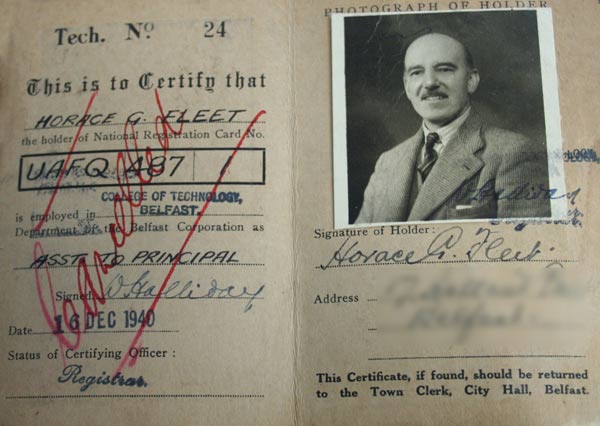 Tech. No 24
This is to Certify that
HORACE G. FLEET
the holder of National Registration Card No.
UAFQ 487
COLLEGE OF TECHNOLOGY,
BELFAST.
is employed in
Department of the Belfast Corporation as
ASST TO PRINCIPAL
Signed
Halliday
Date 16 DEC 1940
Status of Certifying Officer :
Registrar.
Cancelled
PHOTOGRAPH OF HOLDER
Halliday
Signature of Holder:
Horace G. Fleet.
Address
Belfast
This Certificate, if found, should be returned
to the Town Clerk, City Hall, Belfast.